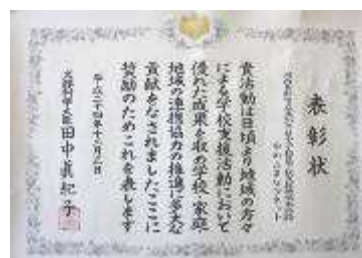 表彰状
貴活動は日頃より地域の方々
による学校支援活動において
優れた成果を収め学校・家庭・
地域の連携協力の推進に多大な
貢献をなされましたここに
奨励のためこれを表します
平成二十四年十二月
文部科学大臣 田中眞紀子